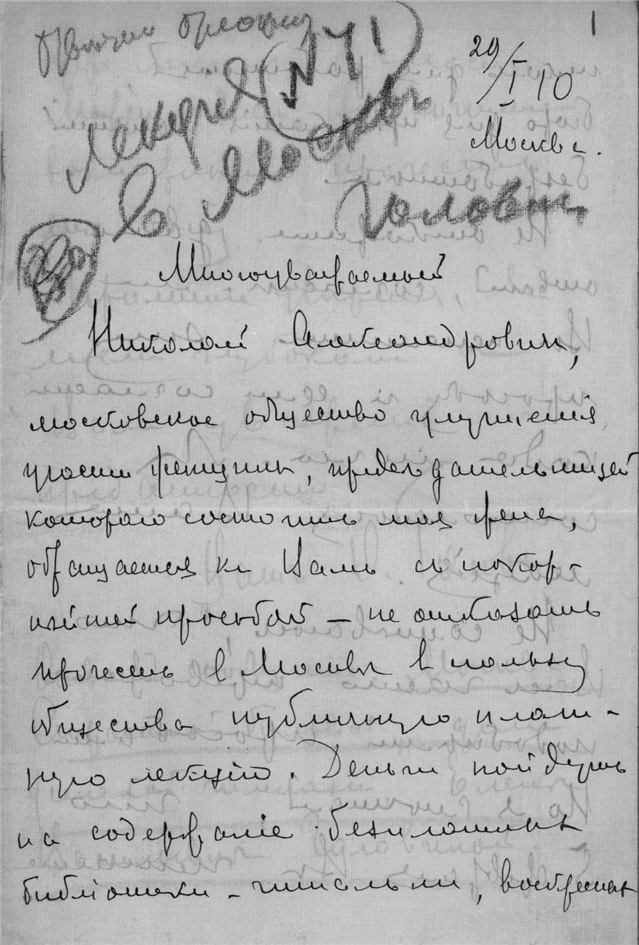 1
Лекция № 71
в Москве
Головин
29/I 10
Москва.
Многоуважаемый
Николай Александрович,
московское общество улучшенія
участи женщинъ, председательницей
котораго состоитъ моя жена,
обращается къ Вамъ съ покор-
нѣйшей просьбой – не отказать
прочесть въ Москвѣ въ пользу
общества публичную плат-
ную лекцію. Деньги пойдутъ
на содержаніе безплатныхъ
библіотеки-читальни, воскресныхъ